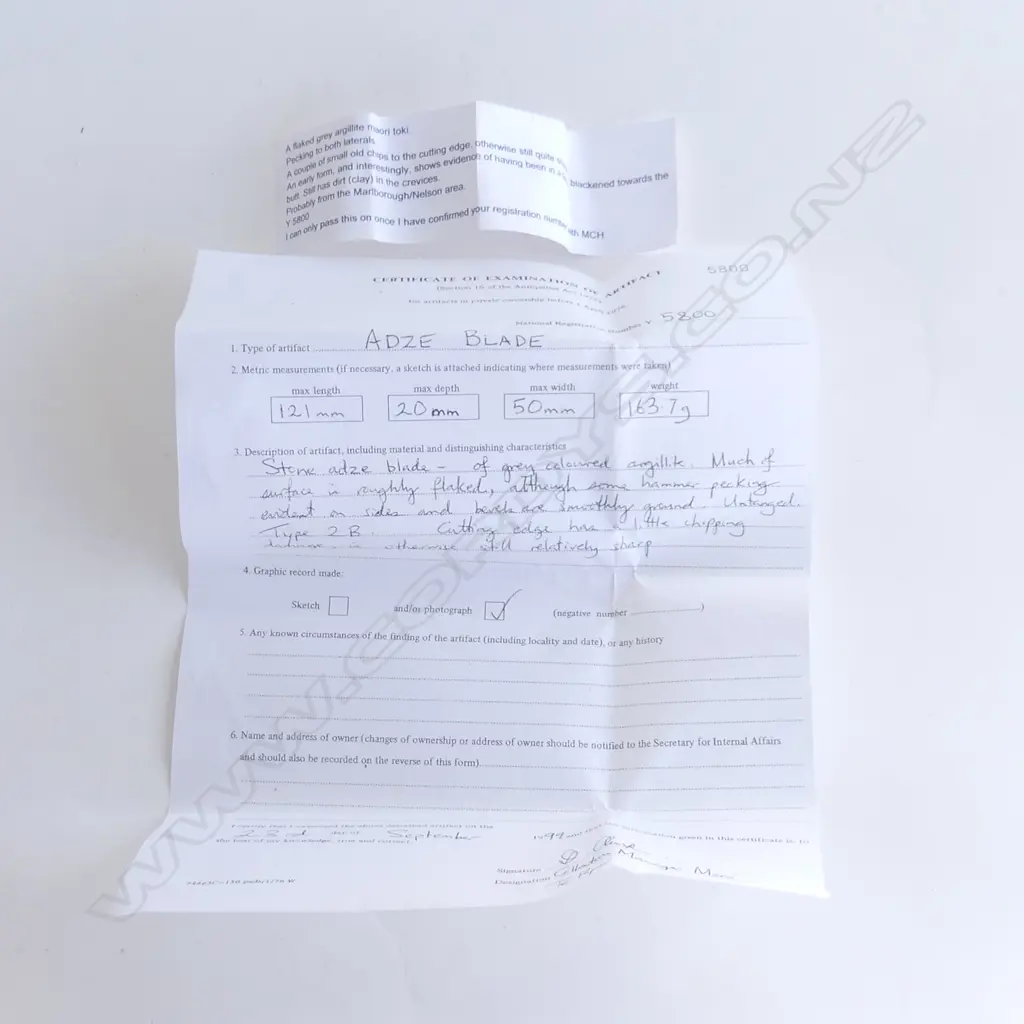 A flaked grey argillite maori toki.
Pecking to both laterals
A couple of small old chips to the cutting edge, otherwise still quite
An early form, and interestingly, shows evidence of having been in a blackened towards the
butt. Still has dirt (clay) in the crevices.
Probably from the Marlborough/Nelson area.
Y 5800
I can only pass this on once I have confirmed your registration number with MCH
CERTIFICATE OF EXAMINATION OF ARTIFACT
5800
(Section 16 of the Antiquities Act
for artifacts in private ownership before 1 April 1976
National Registration Number Y 5800
1. Type of artifact ADZE BLADE
2. Metric measurements (if necessary, a sketch is attached indicating where measurements were taken)
max length max depth max width weight
121mm 20mm 50mm 163.7g
3. Description of artifact, including material and distinguishing characteristics
Stone adze blade - of grey coloured argillite. Much of
surface is roughly flaked, although some hammer pecking
evident on sides and bevels are smoothly ground. Untanged.
Type 2B. Cutting edge has a little chipping
otherwise still relatively sharp
4. Graphic record made:
Sketch and/or photograph (negative number )
5. Any known circumstances of the finding of the artifact (including locality and date), or any history
6. Name and address of owner (changes of ownership or address of owner should be notified to the Secretary for Internal Affairs
and should also be recorded on the reverse of this form)
I certify that I examined the above described artifact on the
23rd day of September 1999 and that the information given in this certificate is, to
the best of my knowledge, true and correct.
Signature D.
Designation Collection Manager
WWW.CORDYS.CO.NZ